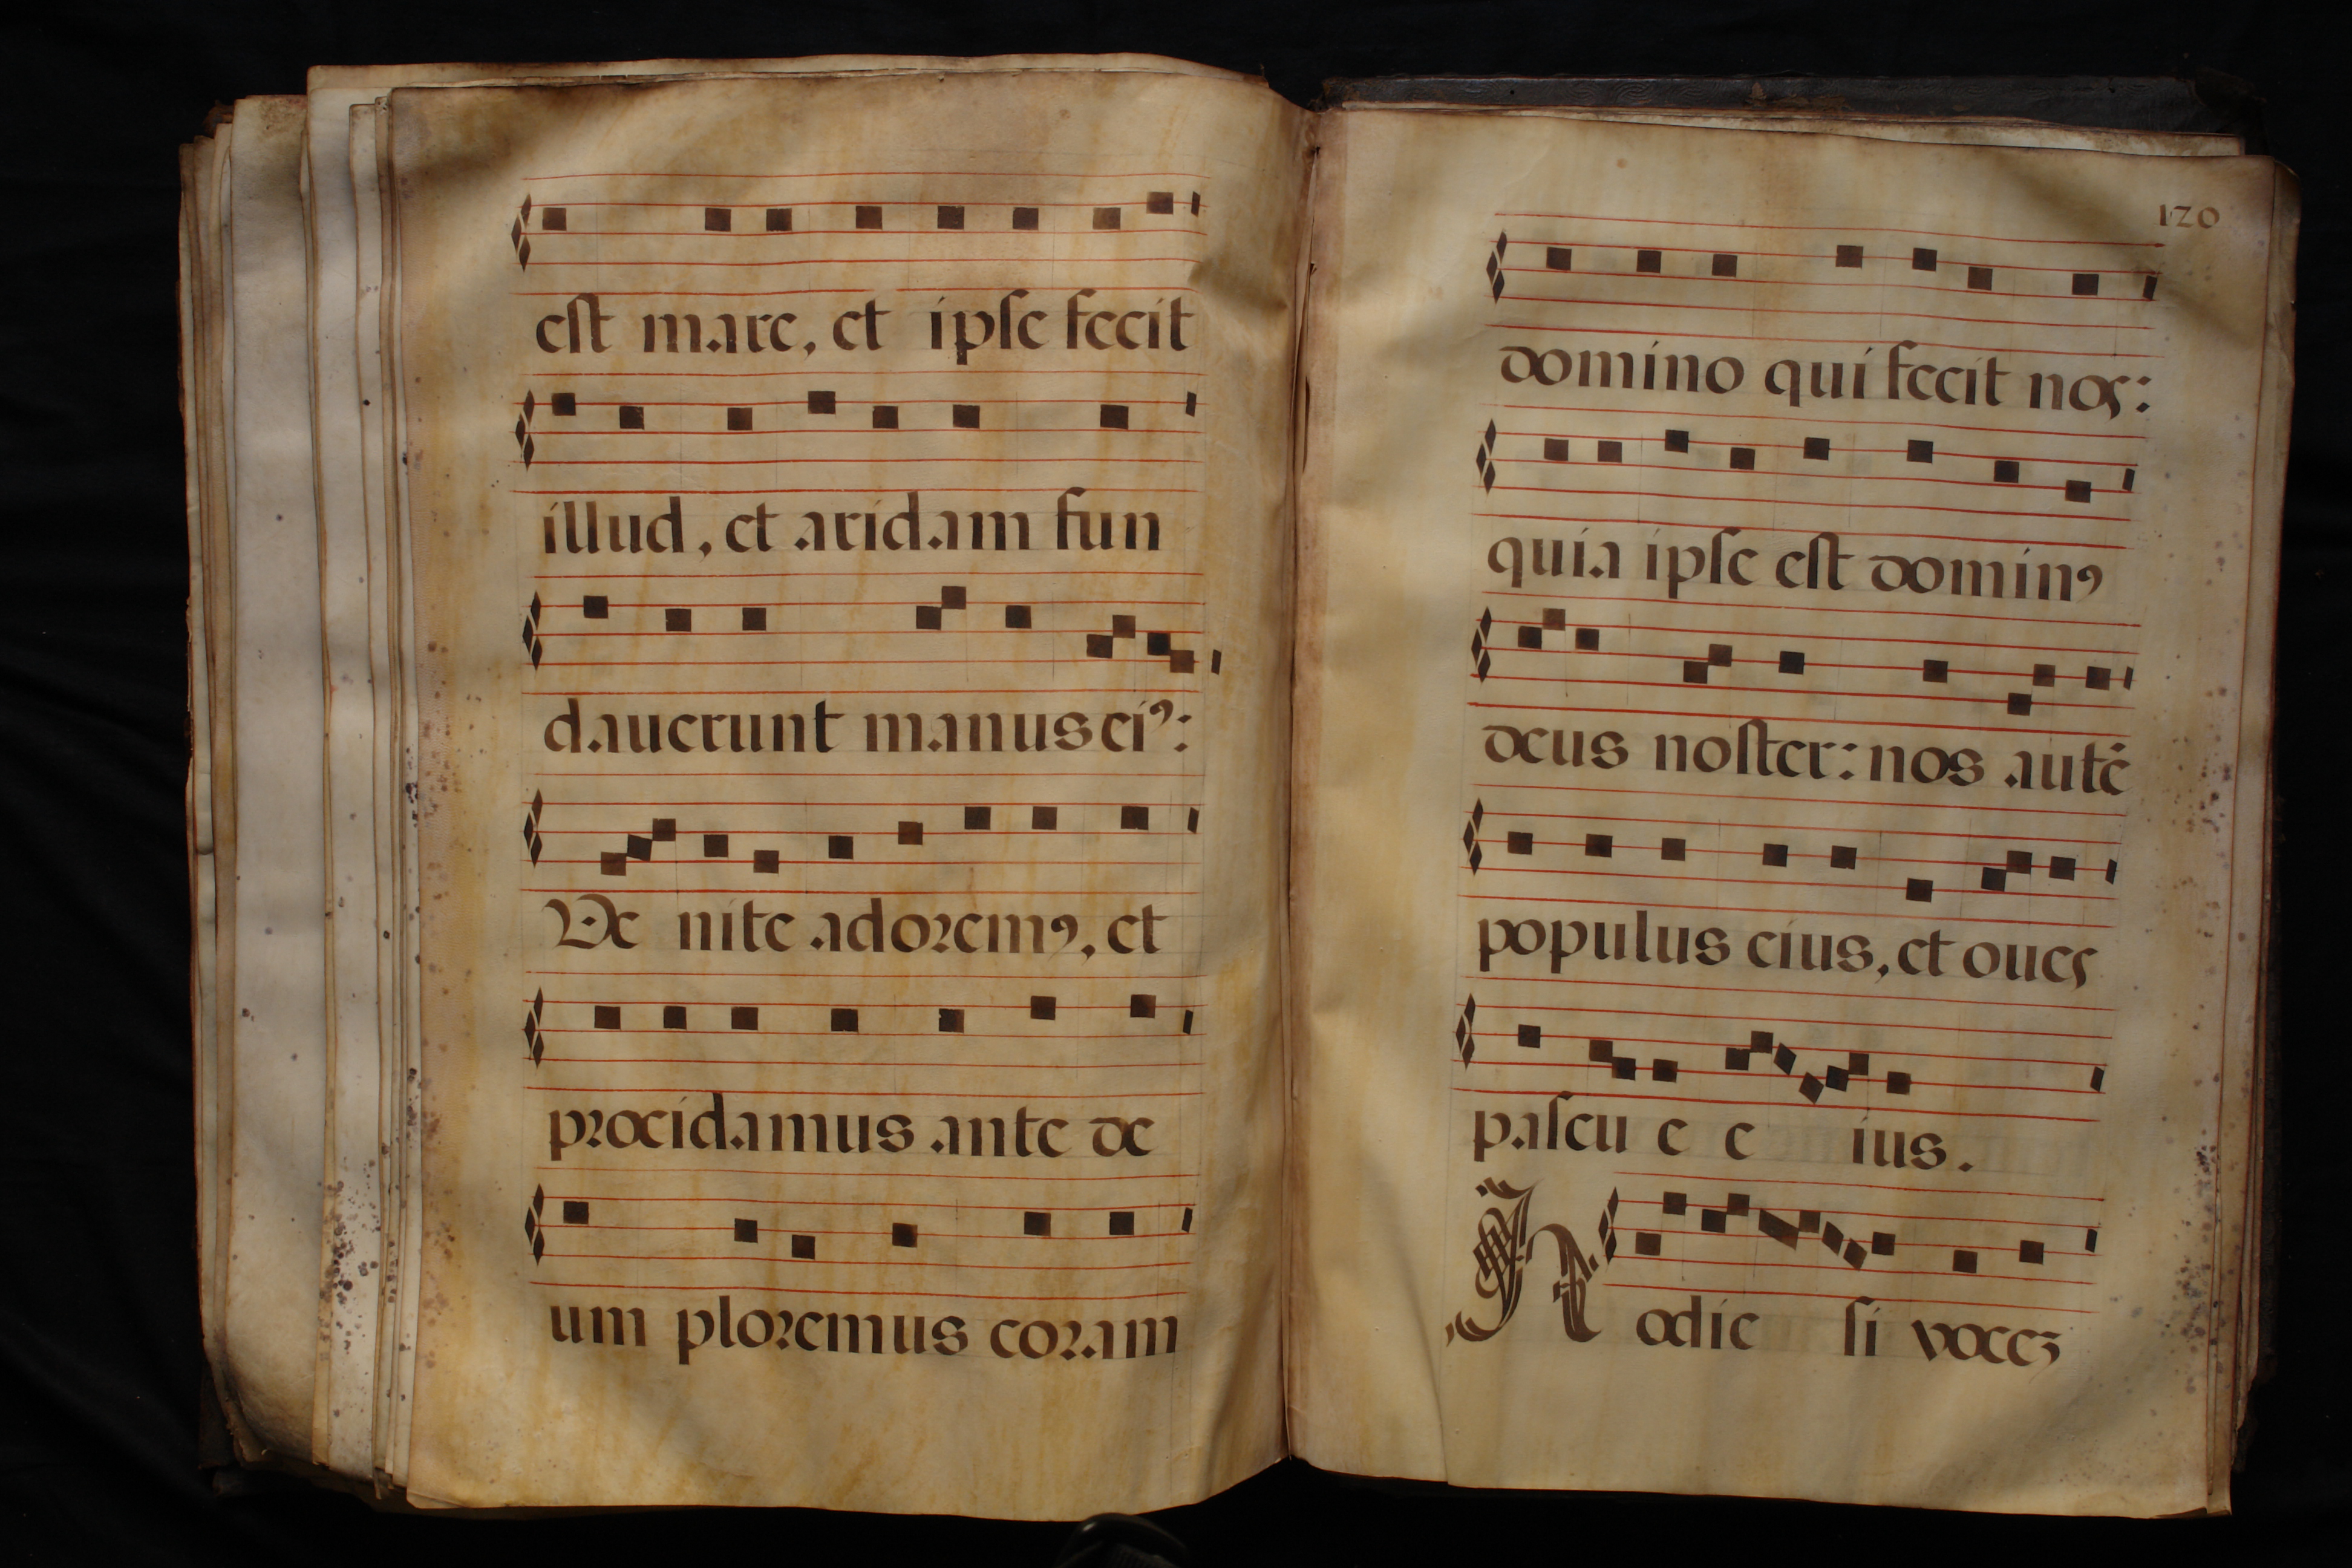 eſt mare, et ipſe fecit
illud, et aridam fun
dauerunt manus eiꝰ:
Ve nite adoꝛemꝰ, et
pꝛocidamus ante de
um ploꝛemus coꝛam
120
domino qui fecit nos:
quia ipſe eſt dominꝰ
deus noſter: nos autē
populus eius, et oues
paſcu e e ius.
Hodie ſi voceꝫ